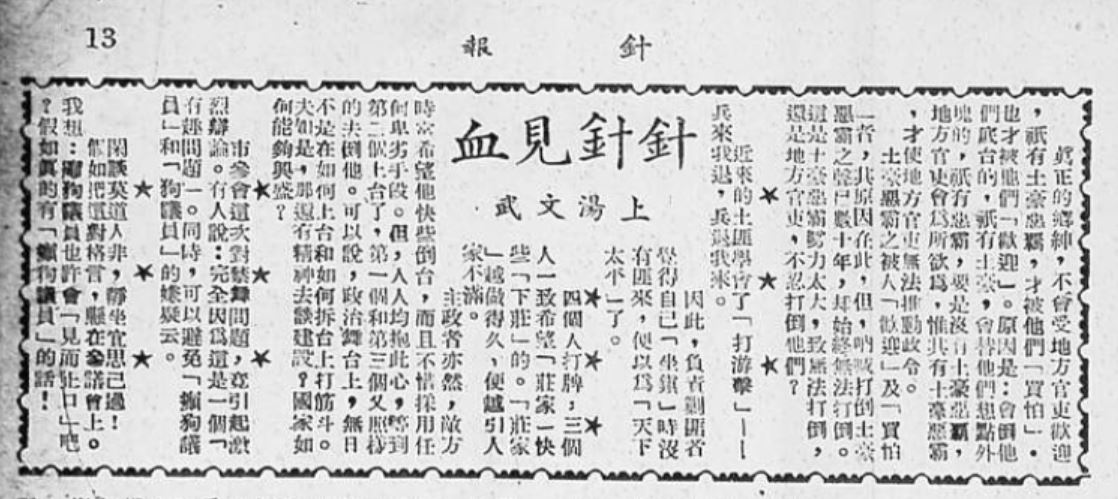 13
針報
針針見血
上湯文武
眞正的鄉紳,不曾受地方官吏歡迎
,祇有土豪惡霸,才被他們「買怕」.
也才被他們「歡迎」。原因是:會倒他
們底台的,祇有土豪,會替他們想點外
塊的,祇有惡霸,要是沒有土豪惡霸,
地方官吏會爲所欲爲,惟其有土豪惡霸
,才使地方官吏無法推動政令。
土豪惡霸之被人「歡迎」及「買怕
」者,其原因在此,但,吶喊打倒土豪
惡霸之聲已數十年,却始終無法打倒。
這是土豪惡霸勢力太大,致無法打倒,
還是地方官吏,不忍打倒他們?
★ ★ ★
近來的土匪學會了「打游擊」——
兵來我退,兵退我來。
因此,負責剿匪者
覺得自己「坐鎮」時沒
有匪來,便以爲「天下
太平」了。
★ ★ ★
四個人打牌,三個
人一致希望「莊家」快
些「下莊」的。「莊家
」越做得久,便越引人
家不滿。
主政者亦然,敵方
時常希望他快些倒台,而且不惜採用任
何卑劣手段。但,人人均抱此心,等到
第二個上台了,第一個和第三個又照樣
的去倒他。可以說,政治舞台上,無日
不是在如何上台和如何拆台上打筋斗。
夫如是,那還有精神去談建設?國家如
何能夠興盛?
★ ★ ★
市參會這次對禁舞問題,竟引起激
烈辯論。有人說:完全因爲這是一個「
有趣問題」。同時,可以避免「癩狗議
員」和「狗議員」的嫌疑云。
★ ★ ★
閑談莫道人非,靜坐宜思己過!
假如把這對格言,懸在參議會上。
我想:癩狗議員也許會「見而止口」吧
?假如眞的有「癩狗議員」的話!